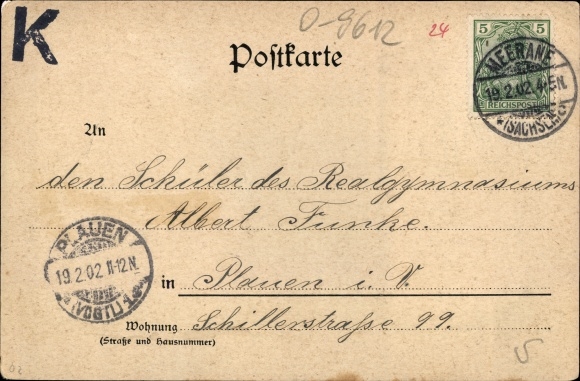 K
O-9612
24
Postkarte
5
REICHSPOST
MEERANE
19.2.02. 4-5N.
*(SACHSEN)*
An
den Schüler des Realgymnasiums
Albert Funke.
PLAUEN
19 2 02 11-12N.
*(VOGTL)1*
in Plauen i. V.
Wohnung Schillerstraße 99.
(Straße und Hausnummer)
5